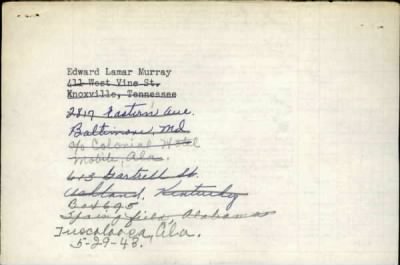 Edward Lamar Murray
411 West Vine St.
Knoxville, Tennessee
2819 Eastern Ave.
Baltimore, Md
c/o Colonial Hotel
Mobile, Ala.
613 Gartrell St.
Ashland, Kentucky
Box 695
Springfield, Alabama
Tuscaloosa, Ala.
5-29-43.